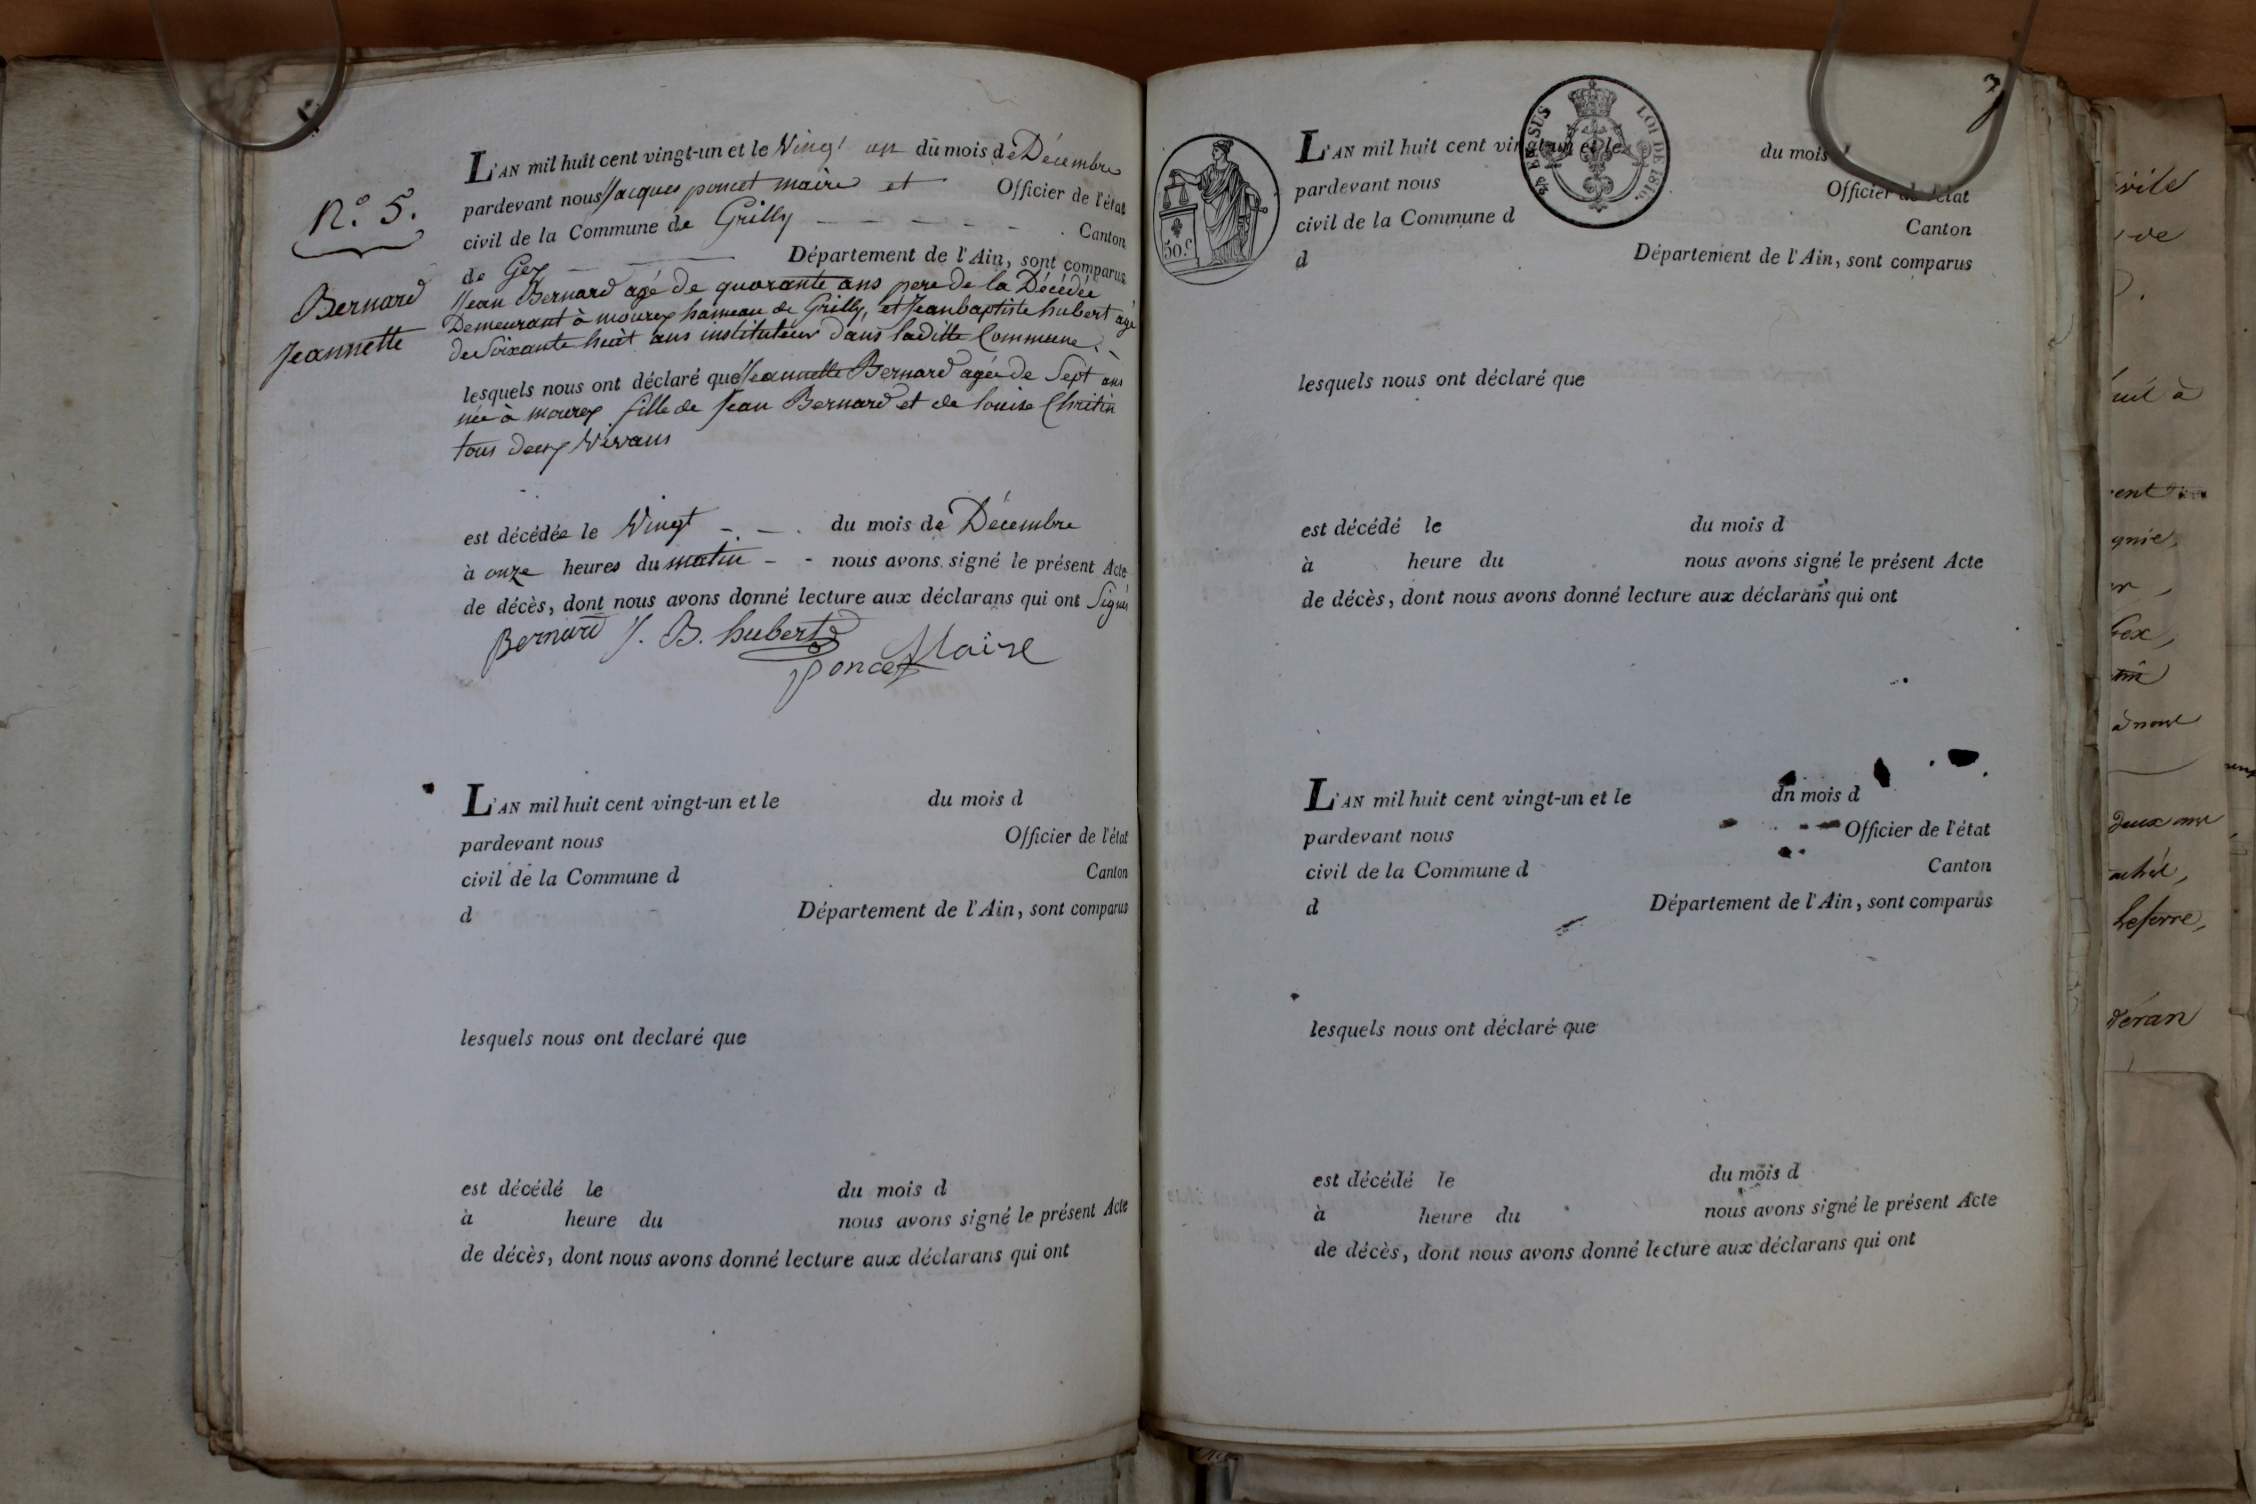 N.o 5.
Bernard
Jeannette
L'AN mil huit cent vingt-un et le Vingt un du mois de Décembre
pardevant nous Jacques poncet maire et Officier de l'état
civil de la Commune de Grilly - - - - - Canton
de Gex Département de l'Ain, sont comparus
Jean Bernard agé de quarante ans pere de la Décédée
Demeurant à mourex hameau de Grilly, et Jeanbaptiste hubert agé
de Soixante huit ans instituteur dans laditte Commune.
lesquels nous ont déclaré que Jeannette Bernard agée de Sept ans
née à mourex fille de Jean Bernard et de louise Chritin
tous deux Vivans
est décédée le Vingt - - du mois de Décembre
à onze heures du matin - - nous avons signé le présent Acte
de décès, dont nous avons donné lecture aux déclarans qui ont Signés
Bernard J. B. hubert
poncet Maire
L'AN mil huit cent vingt-un et le du mois d
pardevant nous Officier de l'état
civil de la Commune d Canton
d Département de l'Ain, sont comparus
lesquels nous ont declaré que
est décédé le du mois d
à heure du nous avons signé le présent Acte
de décès, dont nous avons donné lecture aux déclarans qui ont
3
50.c
EN SUS
LOI DE 1816.
L'AN mil huit cent vingt-un et le du mois
pardevant nous Officier de l'état
civil de la Commune d Canton
d Département de l'Ain, sont comparus
lesquels nous ont déclaré que
est décédé le du mois d
à heure du nous avons signé le présent Acte
de décès, dont nous avons donné lecture aux déclarans qui ont
L'AN mil huit cent vingt-un et le dn mois d
pardevant nous Officier de l'état
civil de la Commune d Canton
d Département de l'Ain, sont comparus
lesquels nous ont déclaré que
est décédé le du mois d
à heure du nous avons signé le présent Acte
de décès, dont nous avons donné lecture aux déclarans qui ont